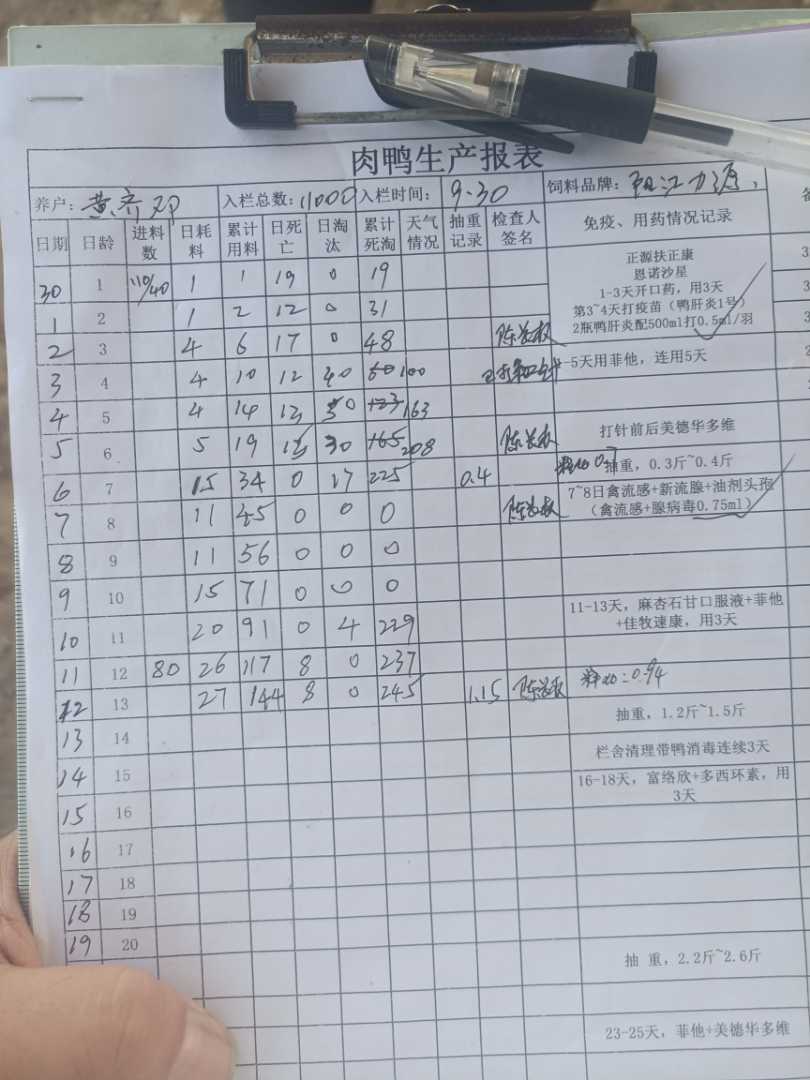 肉鸭生产报表
养户: 黄 入栏总数: 11000 入栏时间: 9.30 饲料品牌: 阳江
日期 日龄 进料数 日耗料 累计用料 日死亡 日淘汰 累计死淘 天气情况 抽重记录 检查人签名 免疫、用药情况记录
30 1 110/40 1 1 19 0 19
正源扶正康
恩诺沙星
1-3天开口药，用3天
第3~4天打疫苗（鸭肝炎1号）
2瓶鸭肝炎配500ml打0.5ml/羽
1 2 1 2 12 0 31
2 3 4 6 17 0 48
3 4 4 10 12 40 100
-5天用菲他，连用5天
4 5 4 14 13 50 163
5 6 5 19 15 30 165 208
打针前后美德华多维
6 7 15 34 0 17 225 0.4
抽重，0.3斤~0.4斤
7 8 11 45 0 0 0
7~8日禽流感+新流腺+油剂头孢
（禽流感+腺病毒0.75ml）
8 9 11 56 0 0 0
9 10 15 71 0 0 0
10 11 20 91 0 4 229
11-13天，麻杏石甘口服液+菲他
+佳牧速康，用3天
11 12 80 26 117 8 0 237
料比:0.94
12 13 27 144 8 0 245 1.15
抽重，1.2斤~1.5斤
13 14
栏舍清理带鸭消毒连续3天
14 15
16-18天，富络欣+多西环素，用
3天
15 16
16 17
17 18
18 19
19 20
抽 重，2.2斤~2.6斤
23-25天，菲他+美德华多维